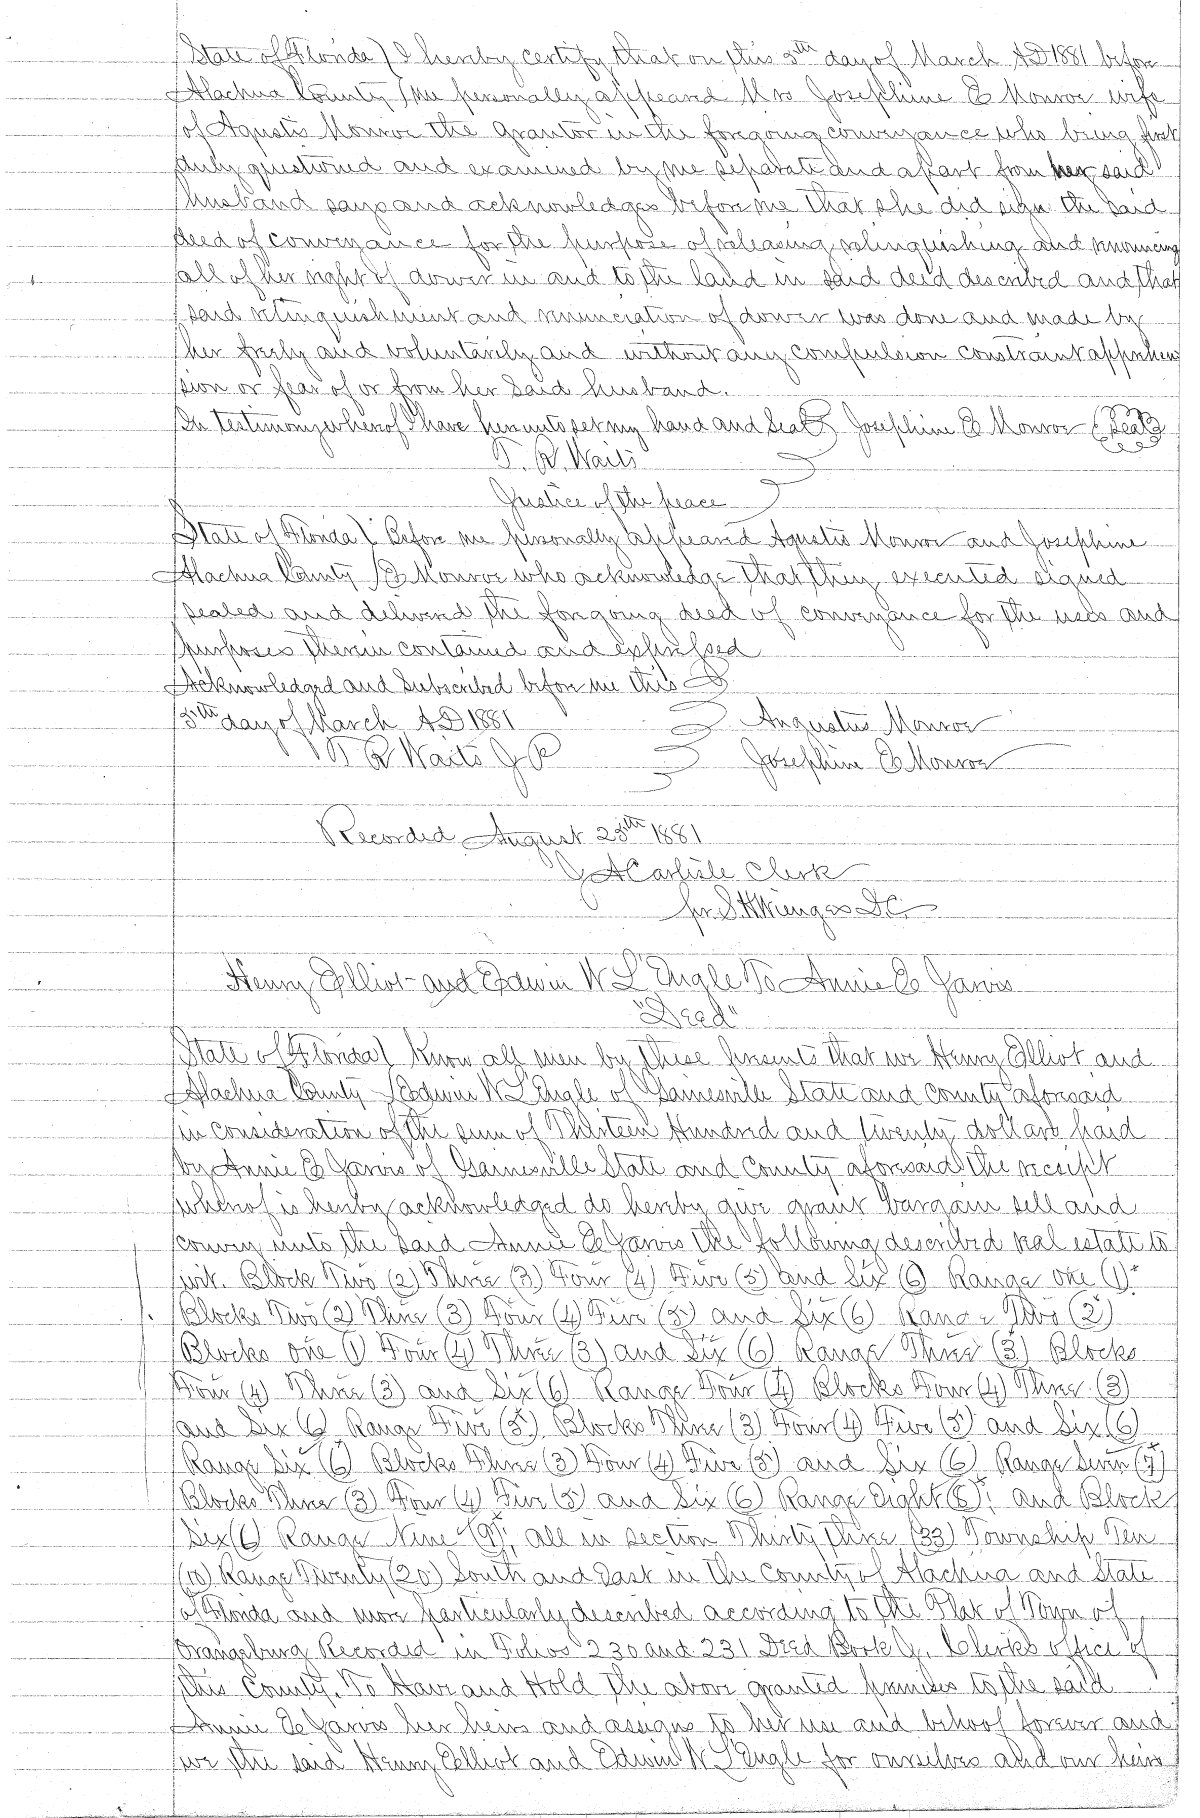 State of Florida } I hereby certify that on this 5th day of March AD 1881 before
Alachua County } me personally appeared Mrs Josephine E Monroe wife
of Agustis Monroe the Grantor in the foregoing conveyance who being first
duly questioned and examined by me separate and apart from her said
husband says and acknowledges before me that she did sign the said
deed of conveyance for the purpose of releasing relinquishing and renouncing
all of her right of dower in and to the land in said deed described and that
said relinquishment and renunciation of dower was done and made by
her freely and voluntarily and without any compulsion constraint apprehen
sion or fear of or from her said husband.
In testimony whereof I have hereunto set my hand and Seal } Josephine E Monroe (Seal)
T. R. Waits
Justice of the peace
State of Florida } Before me personally appeared Agustis Monroe and Josephine
Alachua County } E Monroe who acknowledge that they executed signed
sealed and delivered the foregoing deed of conveyance for the uses and
purposes therein contained and expressed
Acknowledged and Subscribed before me this
5th day of March AD 1881 Augustus Monroe
T R Waits J P Josephine E Monroe
Recorded August 25th 1881
J A Carlisle Clerk
pr. S. H. Wienges D.C.
Henry Elliot and Edwin W L'Engle To Annie E Jarvis
"Deed"
State of Florida } Know all men by these presents that we Henry Elliot and
Alachua County } Edwin W L'Engle of Gainesville State and County aforesaid
in consideration of the sum of Thirteen Hundred and twenty dollars paid
by Annie E Jarvis of Gainesville State and County aforesaid the receipt
whereof is hereby acknowledged do hereby give grant bargain sell and
convey unto the said Annie E Jarvis the following described real estate to
wit. Block Two (2) Three (3) Four (4) Five (5) and Six (6) Range one (1)
Blocks Two (2) Three (3) Four (4) Five (5) and Six (6) Range Two (2)
Blocks one (1) Four (4) Three (3) and Six (6) Range Three (3) Blocks
Four (4) Three (3) and Six (6) Range Four (4) Blocks Four (4) Three (3)
and Six (6) Range Five (5) Blocks Three (3) Four (4) Five (5) and Six (6)
Range Six (6) Blocks Three (3) Four (4) Five (5) and Six (6) Range Seven (7)
Blocks Three (3) Four (4) Five (5) and Six (6) Range Eight (8); and Block
Six (6) Range Nine (9); all in section Thirty three (33) Township Ten
(10) Range Twenty (20) South and East in the County of Alachua and State
of Florida and more particularly described according to the Plat of Town of
Orangeburg Recorded in Folios 230 and 231 Deed Book J. Clerks office of
this County. To Have and Hold the above granted premises to the said
Annie E Jarvis her heirs and assigns to her use and behoof forever and
we the said Henry Elliot and Edwin W L'Engle for ourselves and our heirs